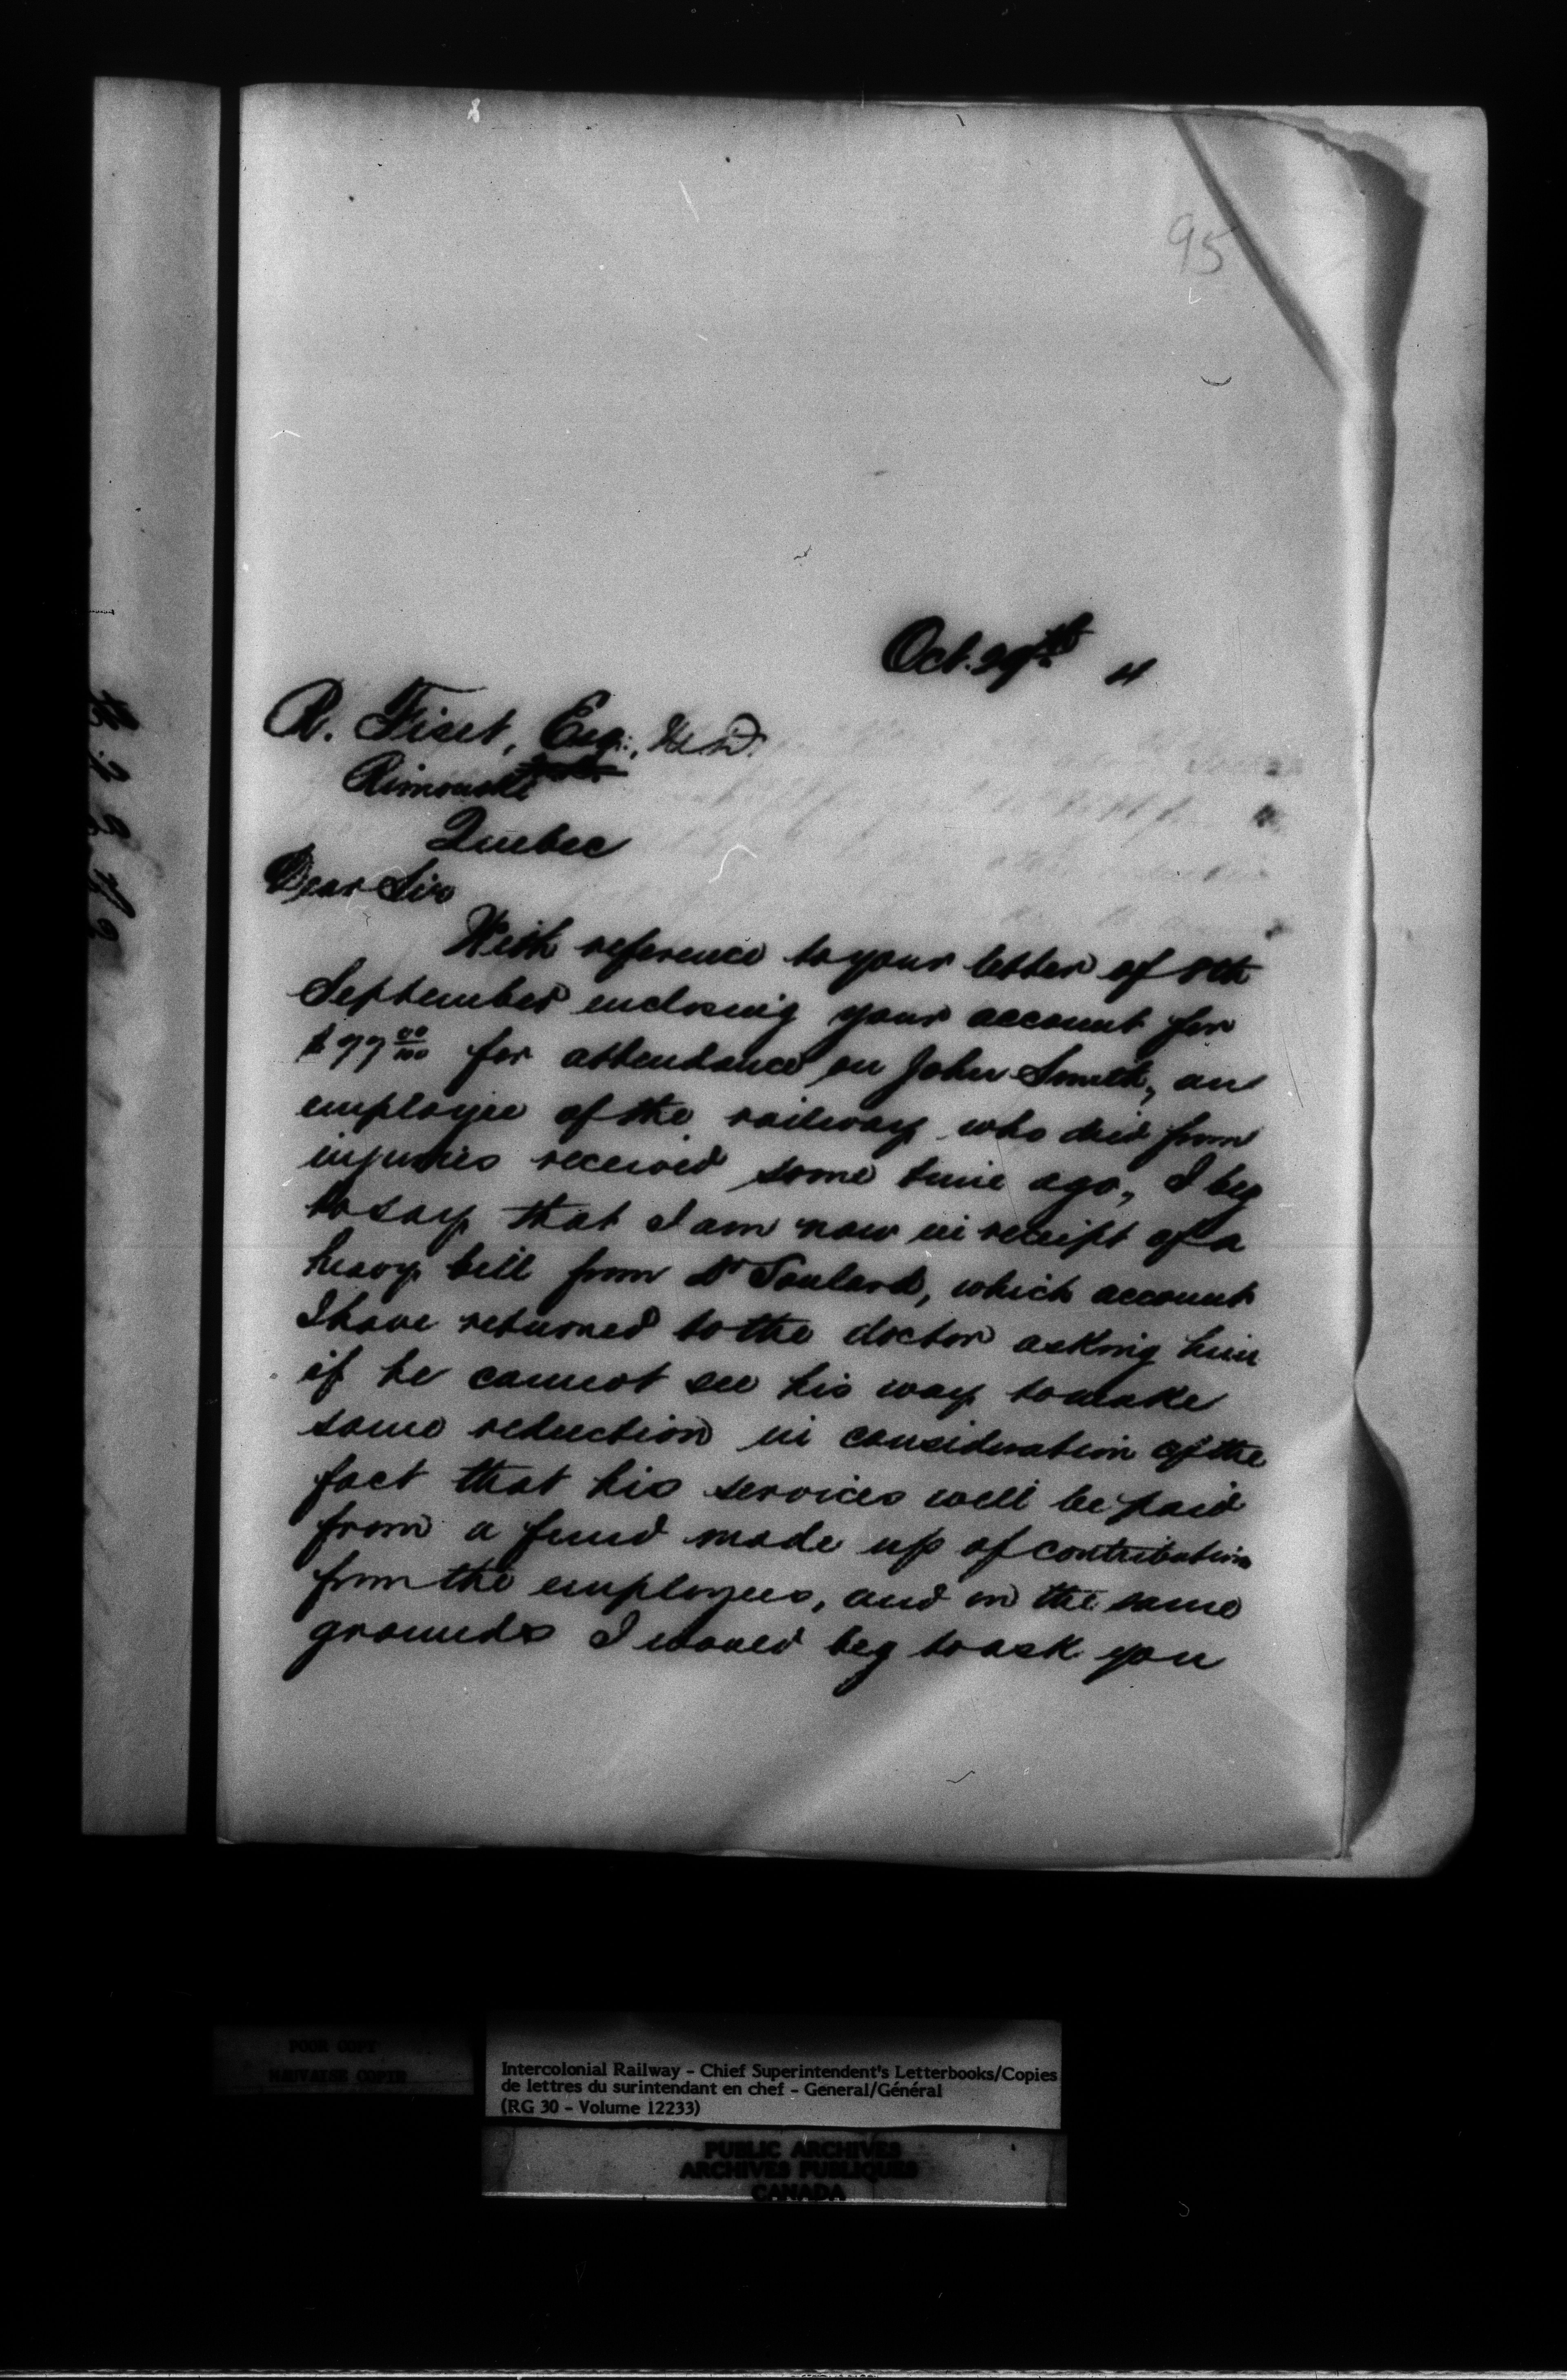 95
Oct. 29th
R. Fiset, Esq., M.D.
Rimouski
Quebec
Dear Sir
With reference to your letter of 8th
September enclosing your account for
$77 00/100 for attendance on John Smith, an
employee of the railway who died from
injuries received some time ago, I beg
to say that I am now in receipt of a
heavy bill from Dr Soulard, which account
I have returned to the doctor asking him
if he cannot see his way to make
some reduction in consideration of the
fact that his services will be paid
from a fund made up of contributions
from the employees, and on the same
grounds I would beg to ask you
POOR COPY
MAUVAISE COPIE
Intercolonial Railway - Chief Superintendent's Letterbooks/Copies
de lettres du surintendant en chef - General/Général
(RG 30 - Volume 12233)
PUBLIC ARCHIVES
ARCHIVES PUBLIQUES
CANADA